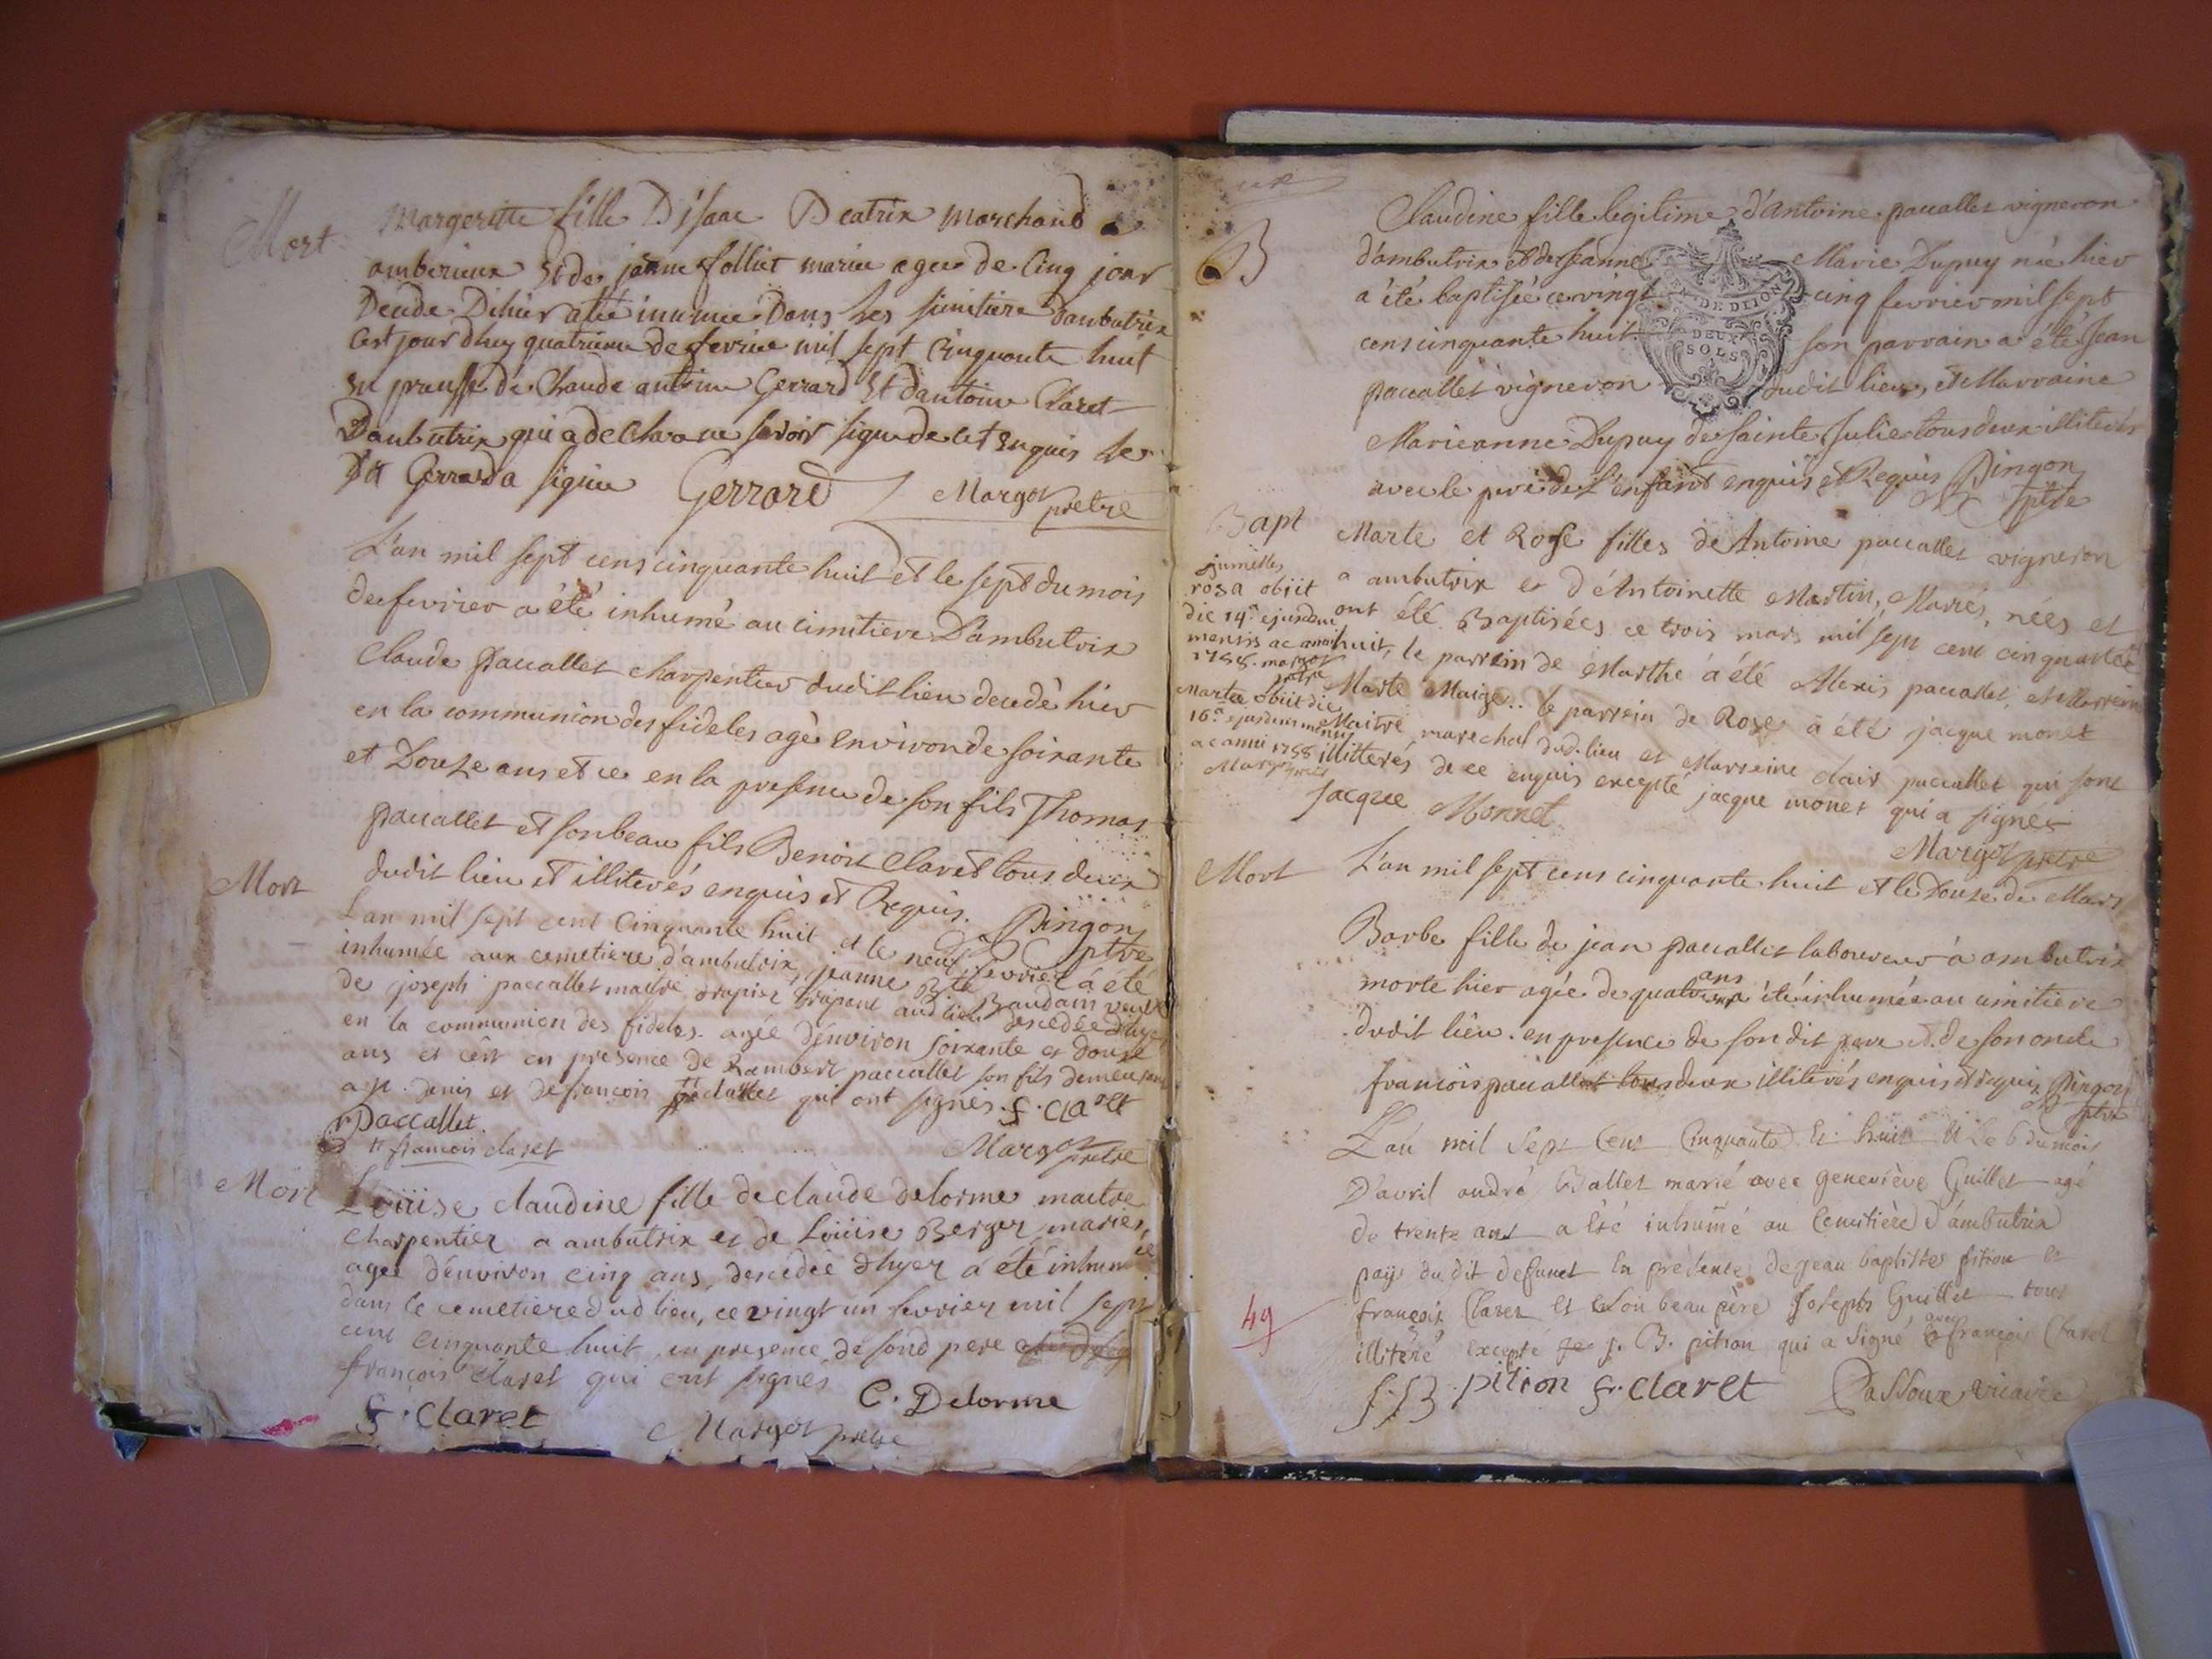 Mort
Margeritte fille D'isaac Beatrix marchand a
amberieux Et de janne folliet mariee agee de Cinq jour
Decede D'hier a été inumee Dans les simitiere dambutrix
Cest jour dhuy quatrieme de fevrier mil sept Cinquante huit
En preusse de Claude antoine Gerrard Et dantoine Claret
Dambutrix qui a declare ne savoir signe de cet enquis le
Dit Gerrard a signee Gerrard Margot pretre
L'an mil sept cens cinquante huit et le sept du mois
de fevrier a été inhumé au cimitiere D'ambutrix
Claude paccallet charpentier dudit lieu decedé hier
en la communion des fideles agé environ de soixante
et Douze ans et ce en la presence de son fils Thomas
paccallet et son beau fils Benoit Claret tous deux
dudit lieu et illiterés enquis et Requis. Pingon ptre
Mort
L'an mil sept cent Cinquante huit et le neuf fevrier a été
inhumée aux cemetiere d'ambutrix, jeanne Baudam veuve
de joseph paccallet maitre drapier drapant aud lieu descedée d'hyer
en la communion des fideles agée d'environ soixante et douze
ans et c'est en presence de Rambert paccallet son fils demeurant
a st. denis et de francois qui ont signés. F. Claret
r paccallet.
francois claret Margot pretre
Mort
Loüise claudine fille de claude delorme maitre
charpentier a ambutrix et de Loüise Berger, mariés,
agée d'environ cinq ans, descédée d'hyer a été inhumée
dans le cemetiere dud lieu, ce vingt un fevrier mil sept
cent cinquante huit en presence de sond pere
françois claret qui ont signés C. Delorme
F. Claret Margot pretre
B
Claudine fille legitime d'Antoine paccallet vigneron
d'ambutrix et de Jeanne Marie Dupuy née hier
a été baptisée ce vingt cinq fevrier mil sept
cens cinquante huit. son parrain a été Jean
paccallet vigneron dudit lieu, et Marraine
Marieanne Dupuy de sainte Julie tous deux illiterés
avec le pere de L'enfant enquis et Requis Pingon ptre
GEN. DE DIJON
DEUX
SOLS
Bapt
jumelles
rosa obiit
die 14a ejusdem
mensis ac anni
1758. margot
pretre
Marta obiit die
16a ejusdem mensis
ac anni 1758
Margot pretre
Marte et Rose filles de Antoine paccallet vigneron
a ambutrix et d'Antoinette Martin, Mariés, nées et
ont été Baptisées ce trois mars mil sept cent cinquante
huit, le parrein de Marthe a été Alexis paccallet, et Marreine
Marte Maige.. le parrein de Rose a été jacque monet
Maitre marechal dud. lieu et Marreine clair paccallet qui sont
illitterés de ce enquis excepté jacque monet qui a signés
Jacque Monnet
Margot pretre
Mort
L'an mil sept cens cinquante huit et le Douze de Mars
Barbe fille de jean paccallet laboureur a ambutrix
morte hier agée de quatre ans a été inhumée au cimitiere
dudit lieu. en presence de son dit pere et de son oncle
francois paccallet tous deux illiterés enquis et requis Pingon ptre
L'an mil sept cent Cinquante et huit et le 6 du mois
D'avril andré Ballet marié avec geneviève Guillet agé
de trente ans a été inhumé au Cemitière d'ambutrix
pays du dit defunct en presence de jean baptiste pitrou et
françois Claret et son beau père Joseph Guillet tous
illitéré excepté j. B. pitrou qui a signé avec françois Claret
49
J. B. pitron F. Claret Passoux vicaire